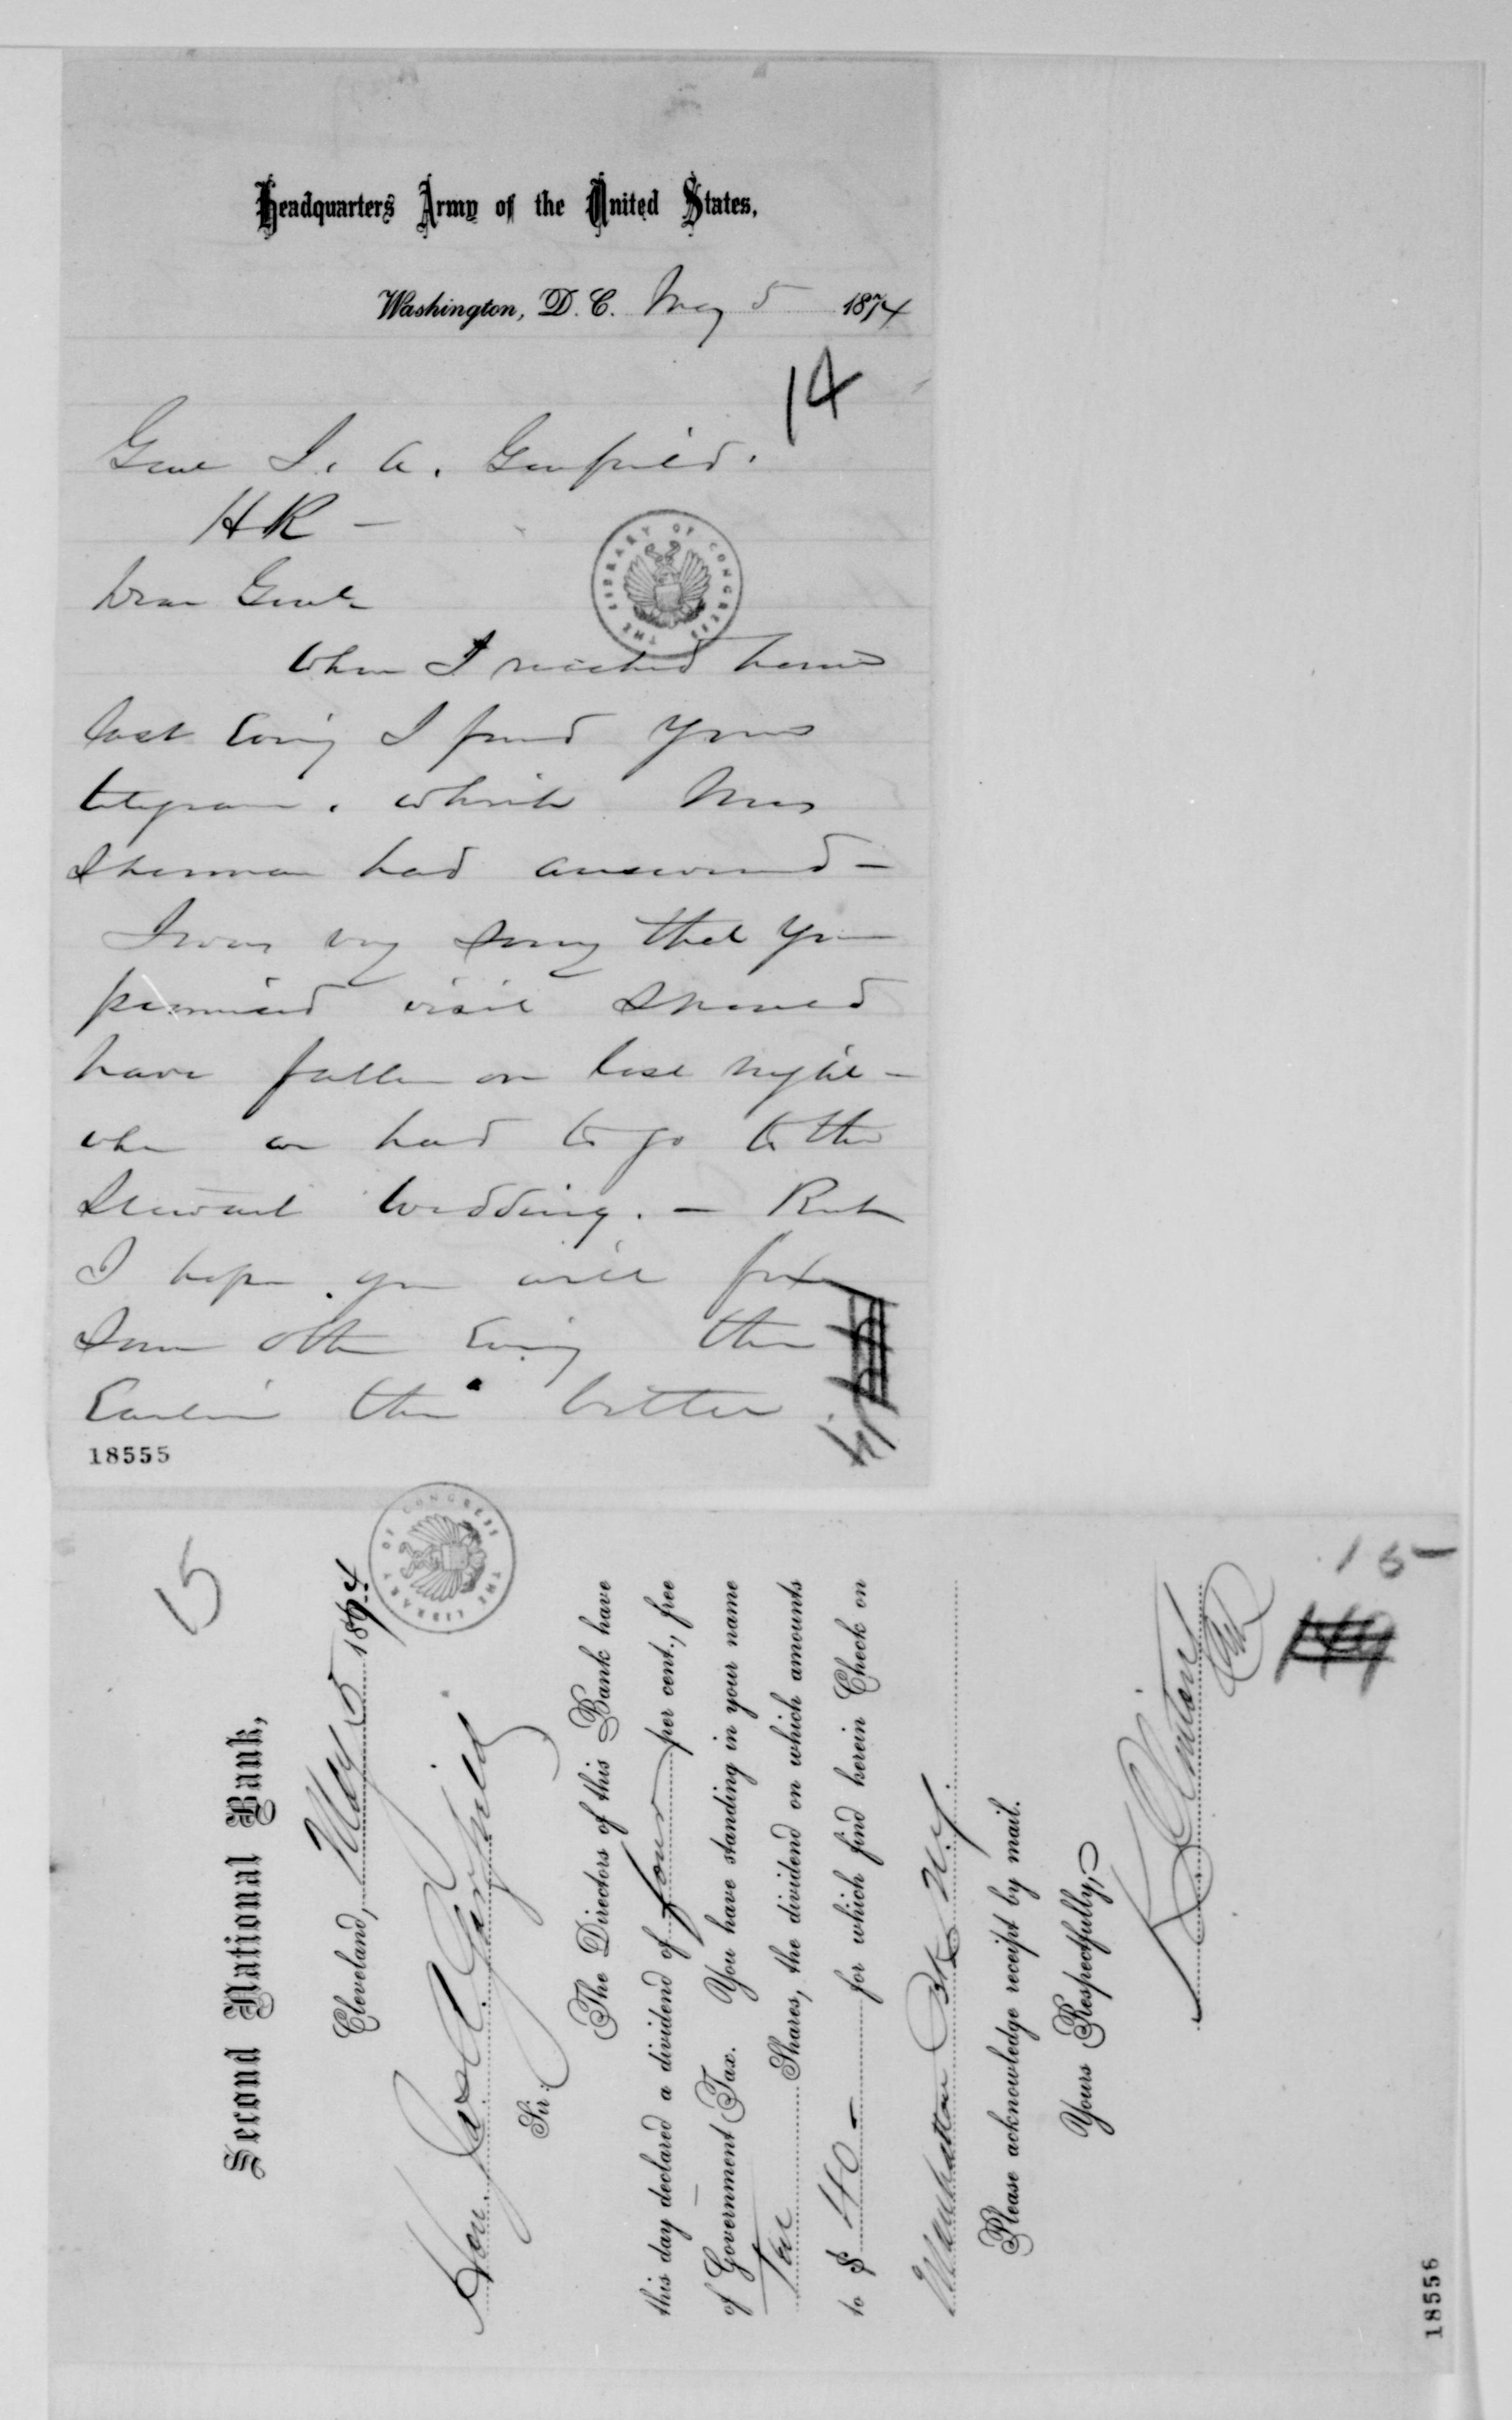 Headquarters Army of the United States,
Washington, D. C. May 5 1874
14
Genl J. A. Garfield.
HR —
Dear Genl
When I reached home
last Evening I found your
telegram. which Mrs
Sherman had answered —
I was very sorry that your
promised visit should
have fallen on last night —
when we had to go to the
Stewart wedding. — But
I hope you will fix
some other Evening the
Earlier the better
18555
THE LIBRARY OF CONGRESS
15
Second National Bank,
Cleveland, May 5 1874
THE LIBRARY OF CONGRESS
Hon. Jas. A. Garfield
Sir:
The Directors of this Bank have
this day declared a dividend of four per cent., free
of Government Tax. You have standing in your name
Ten Shares, the dividend on which amounts
to $ 40 — for which find herein Check on
Manhattan Bk N.Y.
Please acknowledge receipt by mail.
Yours Respectfully,
15
18556